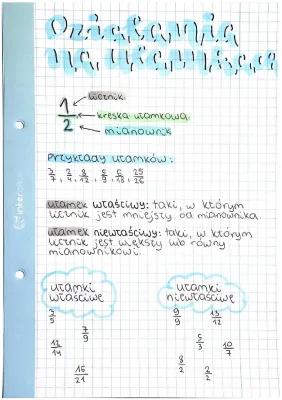 Działania
na ułamkach
1/2
licznik
kreska ułamkowa
mianownik
Przykłady ułamków:
ułamek właściwy: taki, w którym
licznik jest mniejszy od mianownika.
ułamek niewłaściwy: taki, w którym
licznik jest większy lub równy
mianownikowi.
ułamki
właściwe
ułamki
niewłaściwe
3/5
9/9
13/12
7/9
5/3
10/7
12/14
8/2
2/2
16/21